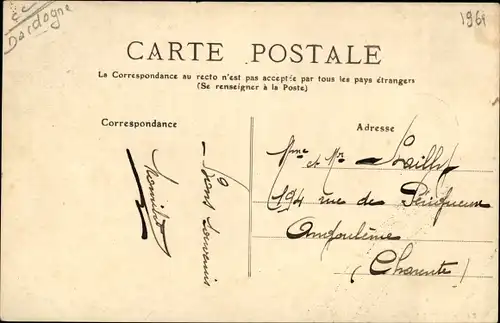 Dardogne
1961
CARTE POSTALE
La Correspondance au recto n'est pas acceptée par tous les pays étrangers
(Se renseigner à la Poste)
Correspondance
Adresse
Bons Souvenirs
Mme et Mr
194 rue de Périgueux
Angoulême
(Charente)